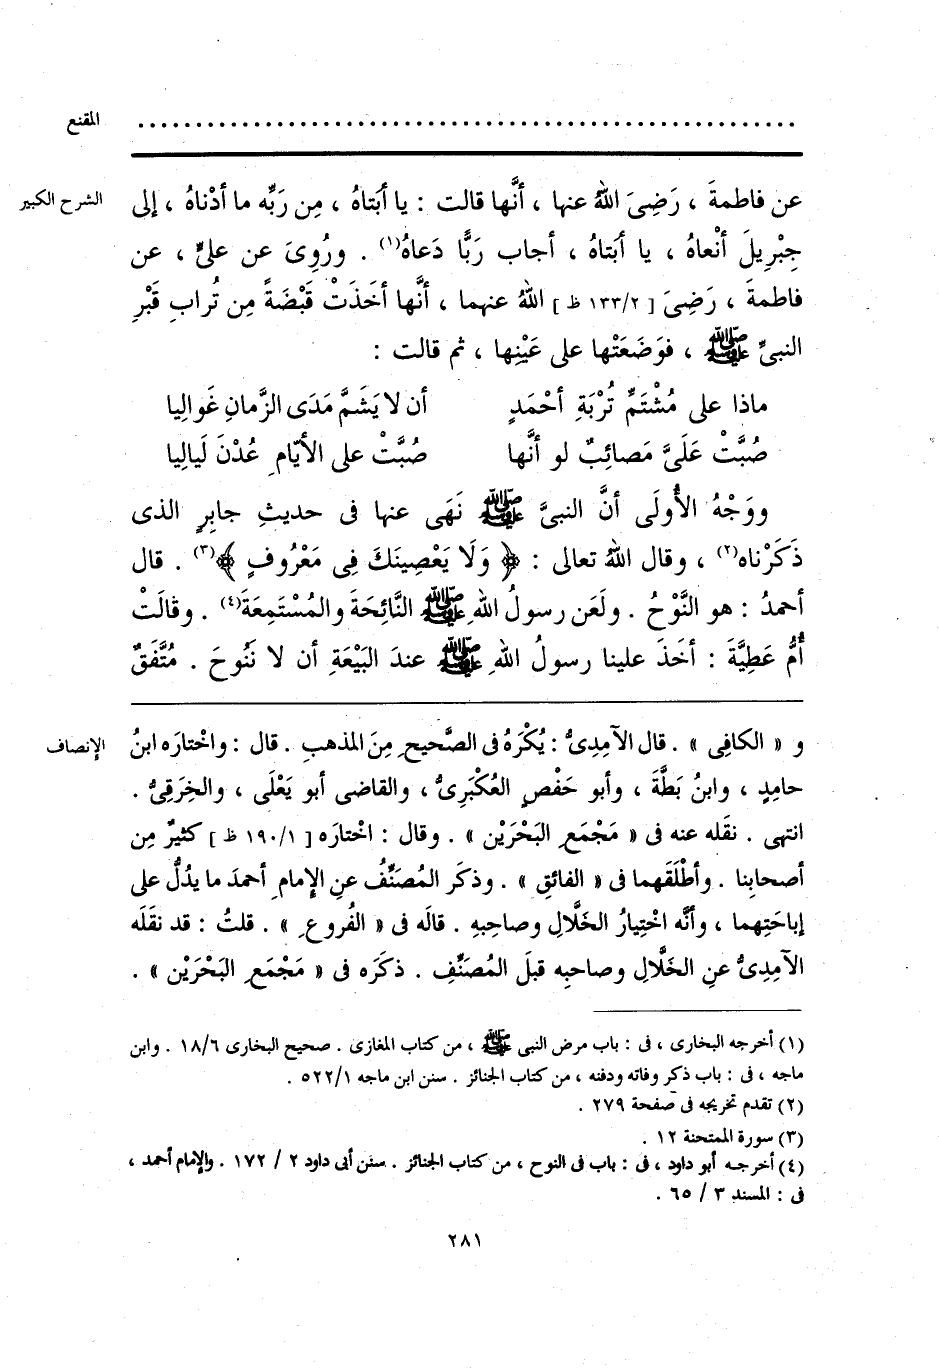 المقنع ........................................................
الشرح الكبير
عن فاطمةَ ، رَضِىَ اللهُ عنها ، أنَّها قالت : يا أبَتاهُ ، مِن رَبِّه ما أدْناهُ ، إلى
جِبْرِيلَ أنْعاهُ ، يا أبَتاهُ ، أجاب رَبًّا دَعاهُ(١) . ورُوِىَ عن علىٍّ ، عن
فاطمةَ ، رَضِىَ [ ١٣٣/٢ ظ ] اللهُ عنهما ، أنَّها أخَذَتْ قَبْضَةً مِن تُرابِ قَبْرِ
النبىِّ ﷺ ، فوَضَعَتْها على عَيْنِها ، ثم قالت :
ماذا على مُشْتَمِّ تُرْبَةِ أحْمَدٍ أن لا يَشَمَّ مَدَى الزَّمانِ غَوالِيا
صُبَّتْ عَلَىَّ مَصائِبٌ لو أنَّها صُبَّتْ على الأيّامِ عُدْنَ لَيالِيا
ووَجْهُ الأُولَى أنَّ النبىَّ ﷺ نَهَى عنها فى حديثِ جابِرٍ الذى
ذَكَرْناه(٢) ، وقال اللهُ تعالى : ﴿ وَلَا يَعْصِينَكَ فِى مَعْرُوفٍ ﴾(٣) . قال
أحمدُ : هو النَّوْحُ . ولَعَن رسولُ اللهِ ﷺ النَّائِحَةَ والمُسْتَمِعَةَ(٤) . وقالَتْ
أُمُّ عَطِيَّةَ : أخَذَ علينا رسولُ اللهِ ﷺ عندَ البَيْعَةِ أن لا نَنُوحَ . مُتَّفَقٌ
الإنصاف
و « الكافِى » . قال الآمِدِىُّ : يُكْرَهُ فى الصَّحيحِ مِنَ المذهبِ . قال : واخْتارَه ابنُ
حامِدٍ ، وابنُ بَطَّةَ ، وأبو حَفْصٍ العُكْبَرِىُّ ، والقاضى أبو يَعْلَى ، والخِرَقِىُّ .
انتهى . نقَله عنه فى « مَجْمَعِ البَحْرَيْن » . وقال : اخْتارَه [ ١٩٠/١ ظ ] كثيرٌ مِن
أصحابِنا . وأطْلَقَهما فى « الفائقِ » . وذكَر المُصَنِّفُ عنِ الإمامِ أحمدَ ما يدُلُّ على
إباحَتِهما ، وأنَّه اخْتِيارُ الخَلَّالِ وصاحِبِهِ . قالَه فى « الفُروعِ » . قلتُ : قد نقَلَه
الآمِدِىُّ عنِ الخَلَّالِ وصاحبِه قبلَ المُصَنِّفِ . ذكَرَه فى « مَجْمَعِ البَحْرَيْن » .
(١) أخرجه البخارى ، فى : باب مرض النبى ﷺ ، من كتاب المغازى . صحيح البخارى ١٨/٦ . وابن
ماجه ، فى : باب ذكر وفاته ودفنه ، من كتاب الجنائز . سنن ابن ماجه ٥٢٢/١ .
(٢) تقدم تخريجه فى صفحة ٢٧٩ .
(٣) سورة الممتحنة ١٢ .
(٤) أخرجه أبو داود ، فى : باب فى النوح ، من كتاب الجنائز . سنن أبى داود ٢ / ١٧٢ . والإمام أحمد ،
فى : المسند ٣ / ٦٥ .
٢٨١